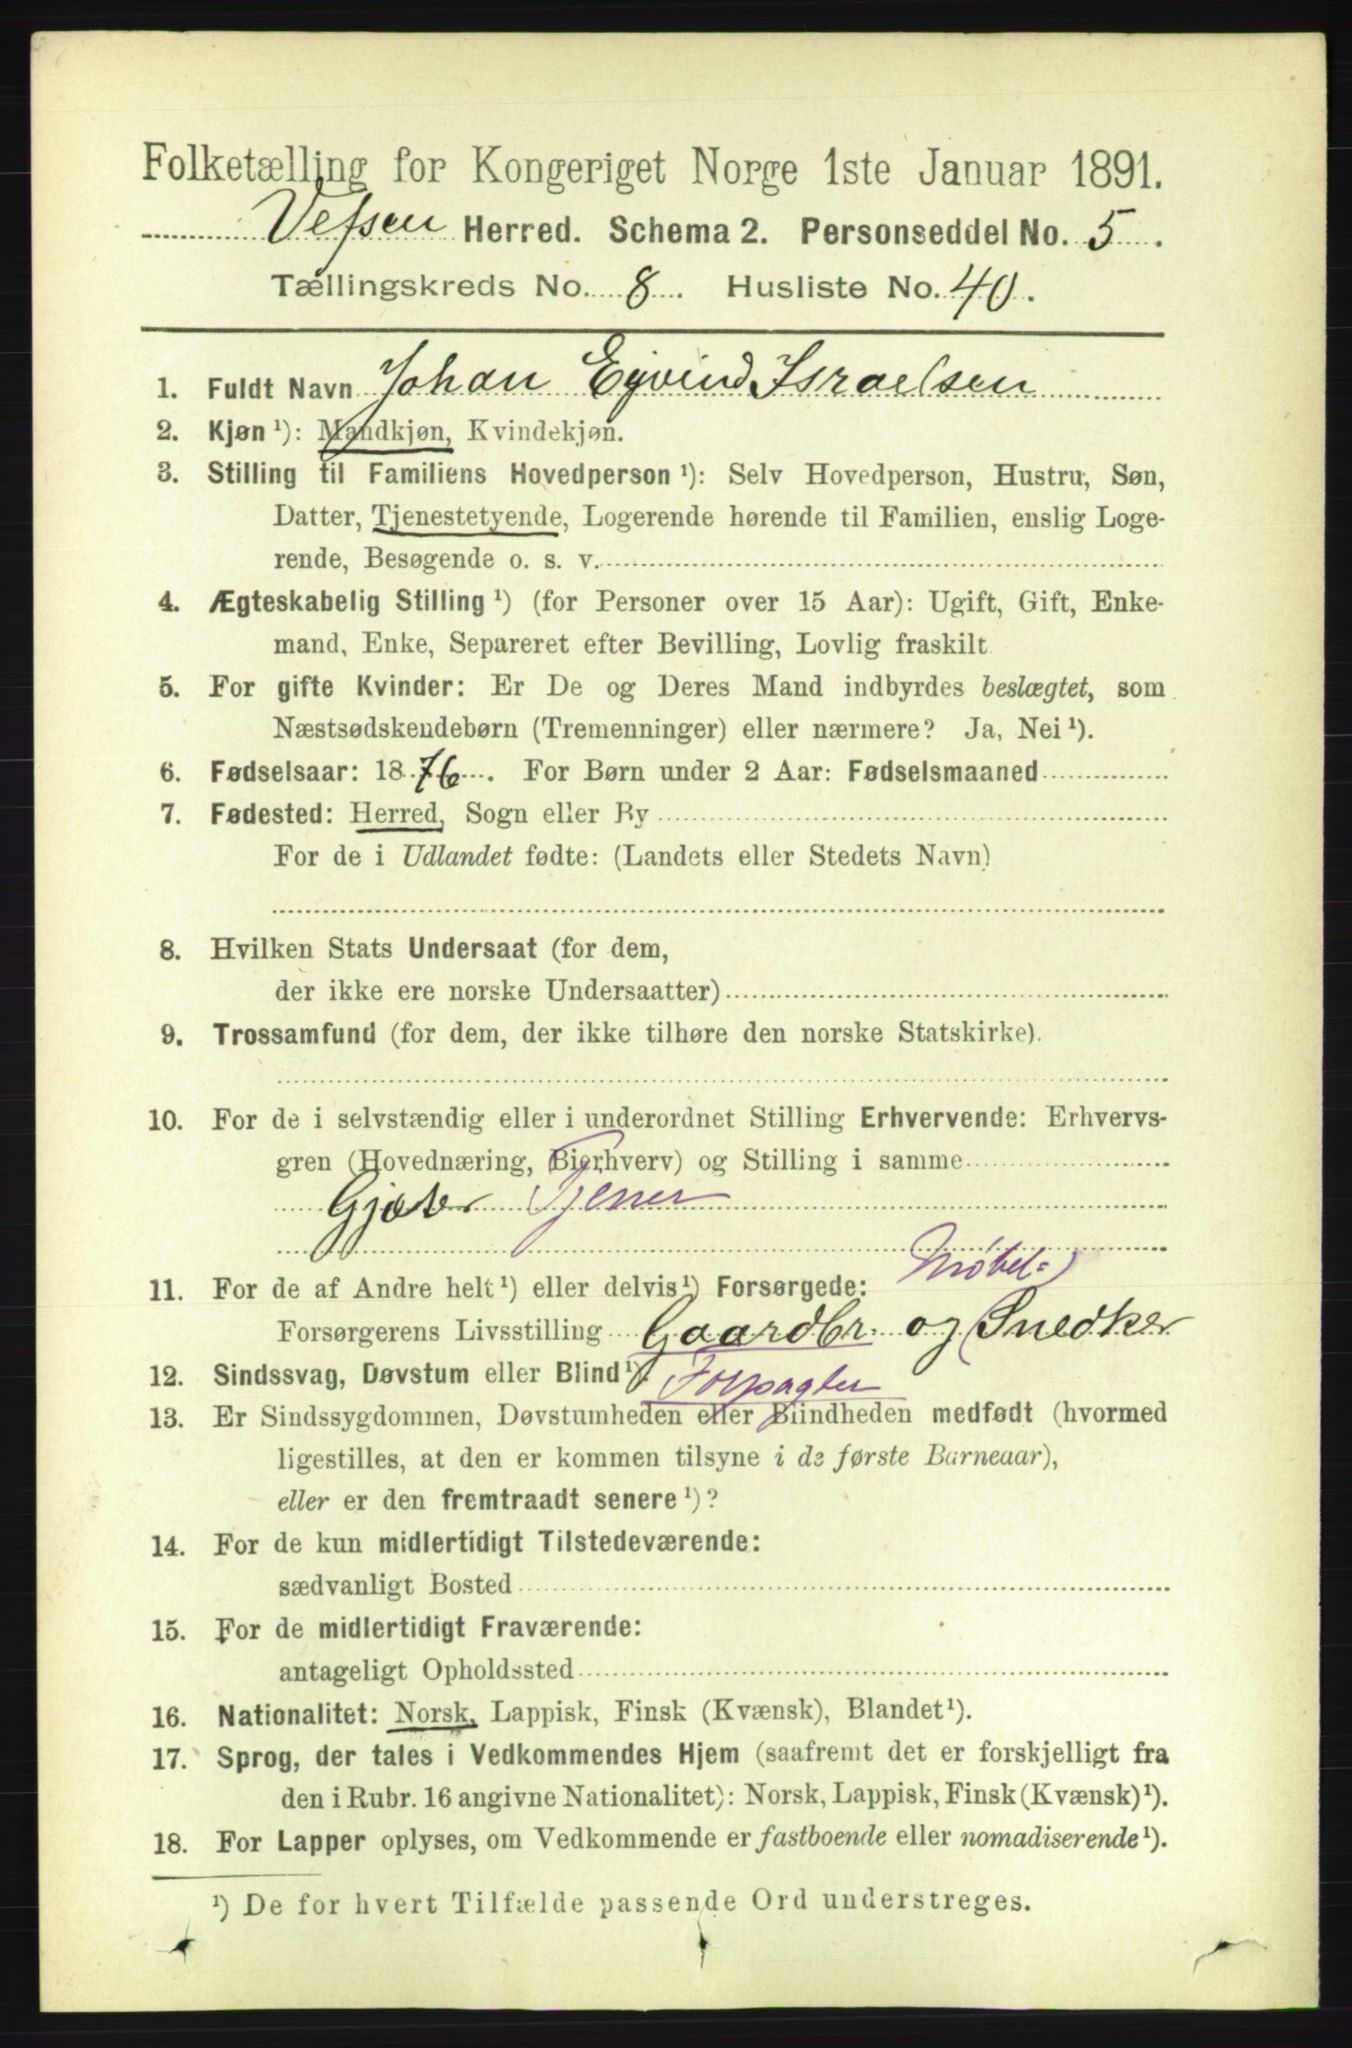 Folketælling for Kongeriget Norge 1ste Januar 1891.
Vefsen Herred. Schema 2. Personseddel No. 5.
Tællingskreds No. 8. Husliste No. 40.
1. Fuldt Navn Johan Eyvind Israelsen
2. Kjøn ¹): Mandkjøn, Kvindekjøn.
3. Stilling til Familiens Hovedperson ¹): Selv Hovedperson, Hustru, Søn,
Datter, Tjenestetyende, Logerende hørende til Familien, enslig Loge-
rende, Besøgende o. s. v.
4. Ægteskabelig Stilling ¹) (for Personer over 15 Aar): Ugift, Gift, Enke-
mand, Enke, Separeret efter Bevilling, Lovlig fraskilt
5. For gifte Kvinder: Er De og Deres Mand indbyrdes beslægtet, som
Næstsødskendebørn (Tremenninger) eller nærmere? Ja, Nei ¹).
6. Fødselsaar: 1876. For Børn under 2 Aar: Fødselsmaaned
7. Fødested: Herred, Sogn eller By
For de i Udlandet fødte: (Landets eller Stedets Navn)
8. Hvilken Stats Undersaat (for dem,
der ikke ere norske Undersaatter)
9. Trossamfund (for dem, der ikke tilhøre den norske Statskirke).
10. For de i selvstændig eller i underordnet Stilling Erhvervende: Erhvervs-
gren (Hovednæring, Bierhverv) og Stilling i samme
Gjæter Tjener
Møbel-
11. For de af Andre helt ¹) eller delvis ¹) Forsørgede:
Forsørgerens Livsstilling Gaardbr. og Snedker
12. Sindssvag, Døvstum eller Blind ¹). Forpagter
13. Er Sindssygdommen, Døvstumheden eller Blindheden medfødt (hvormed
ligestilles, at den er kommen tilsyne i de første Barneaar),
eller er den fremtraadt senere ¹)?
14. For de kun midlertidigt Tilstedeværende:
sædvanligt Bosted
15. For de midlertidigt Fraværende:
antageligt Opholdssted
16. Nationalitet: Norsk, Lappisk, Finsk (Kvænsk), Blandet ¹).
17. Sprog, der tales i Vedkommendes Hjem (saafremt det er forskjelligt fra
den i Rubr. 16 angivne Nationalitet): Norsk, Lappisk, Finsk (Kvænsk) ¹).
18. For Lapper oplyses, om Vedkommende er fastboende eller nomadiserende ¹).
¹) De for hvert Tilfælde passende Ord understreges.